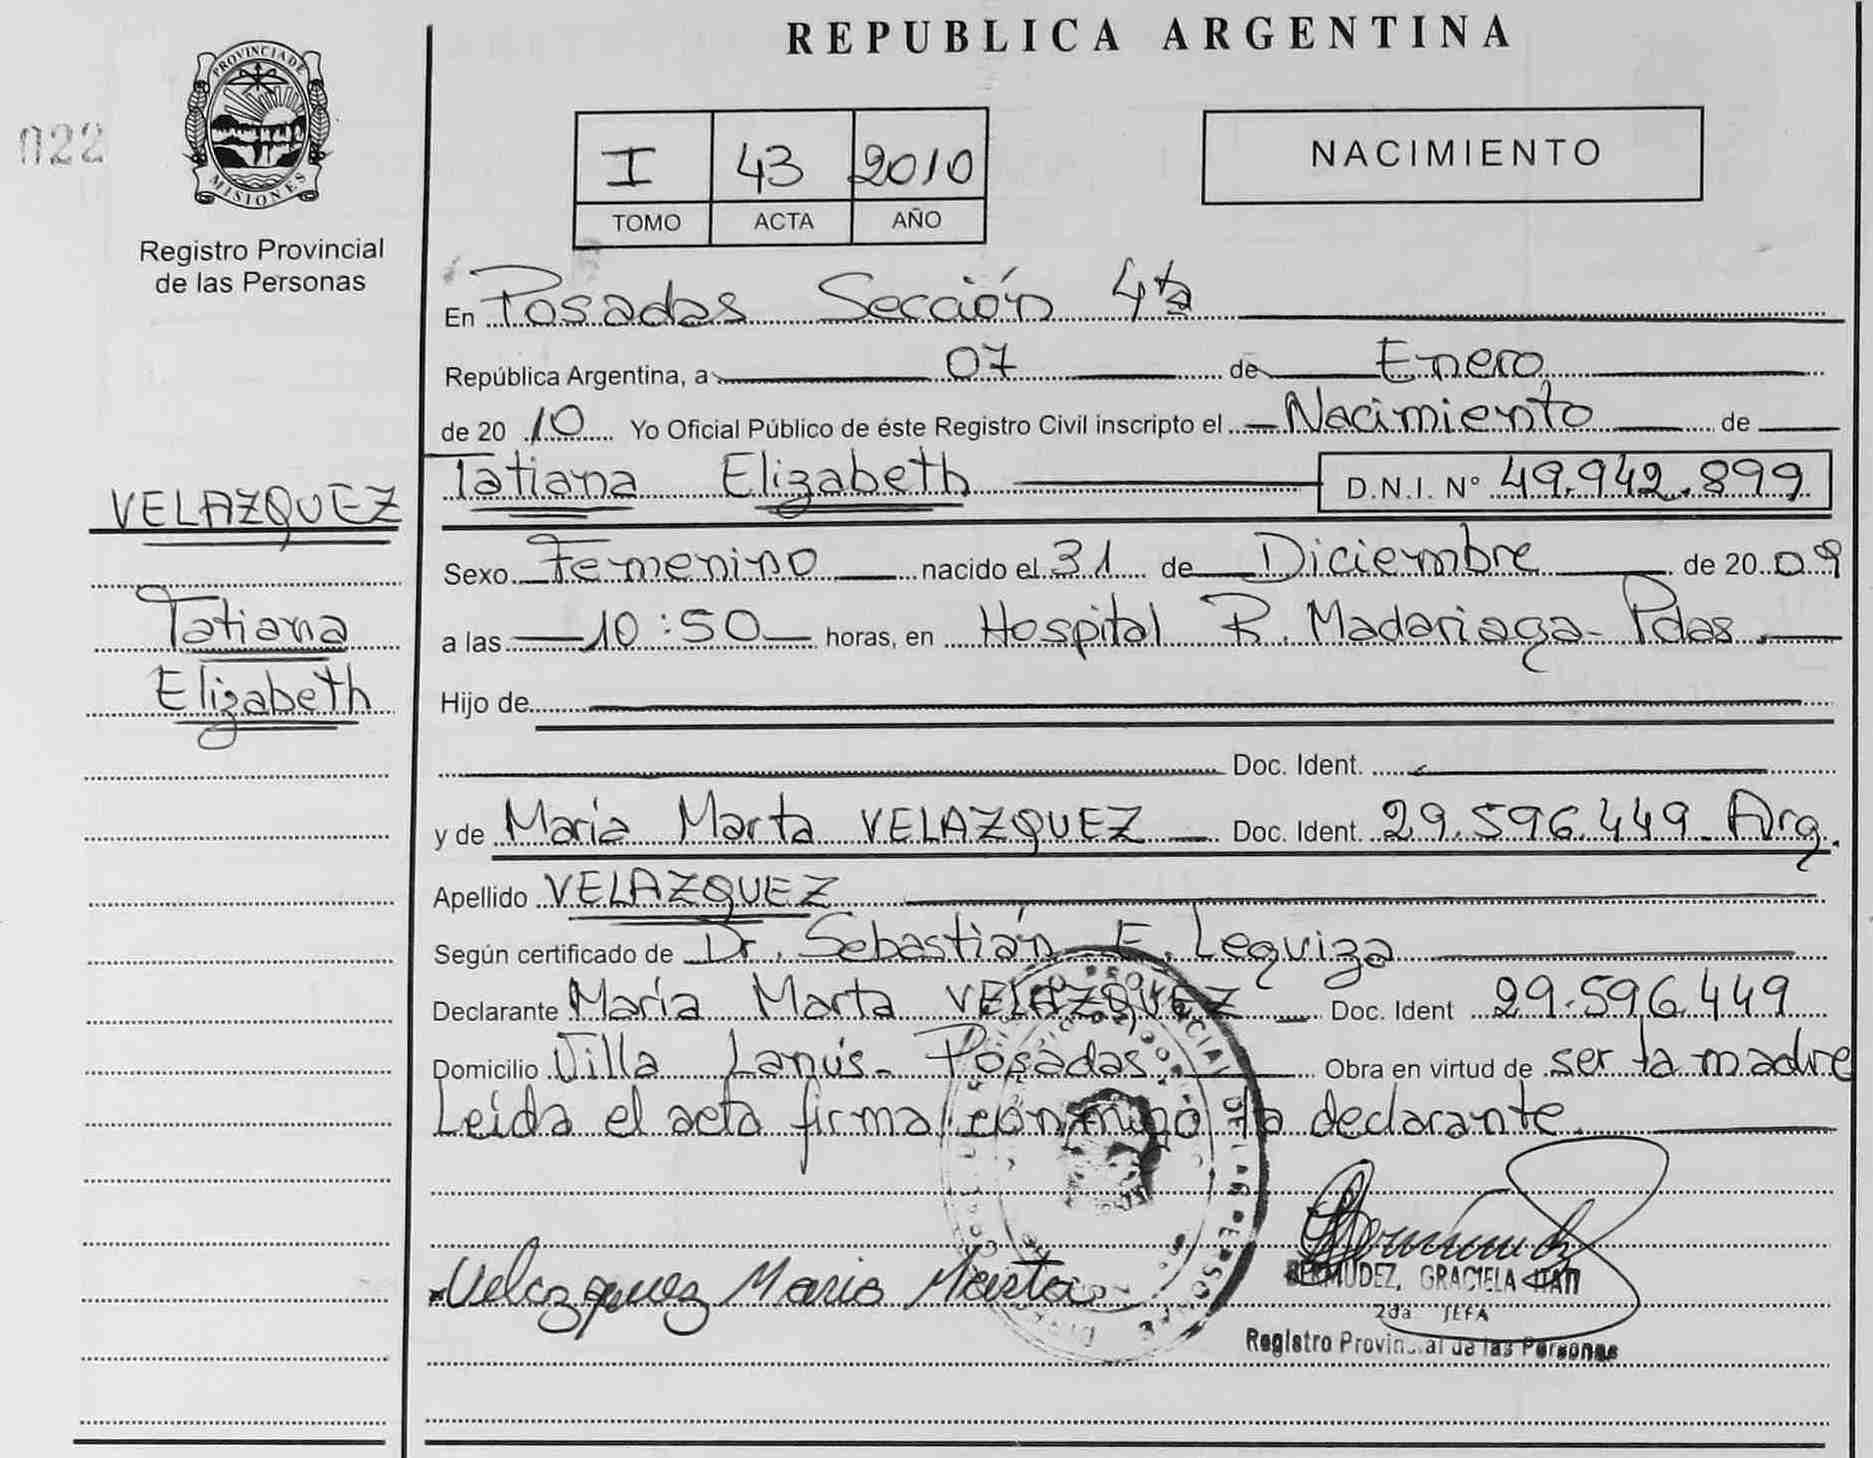 REPUBLICA ARGENTINA
022
PROVINCIA DE
MISIONES
Registro Provincial
de las Personas
I 43 2010
TOMO ACTA AÑO
NACIMIENTO
En Posadas Sección 4ta
República Argentina, a 07 de Enero
de 2010 Yo Oficial Público de éste Registro Civil inscripto el Nacimiento de
Tatiana Elizabeth D.N.I. N° 49.942.899
VELAZQUEZ
Tatiana
Elizabeth
Sexo Femenino nacido el 31 de Diciembre de 2009
a las 10:50 horas, en Hospital R. Madariaga- Pdas.
Hijo de
Doc. Ident.
y de María Marta VELAZQUEZ Doc. Ident. 29.596.449 Arg.
Apellido VELAZQUEZ
Según certificado de Dr. Sebastián E. Leguiza
Declarante María Marta VELAZQUEZ Doc. Ident 29.596.449
Domicilio Villa Lanús- Posadas Obra en virtud de ser la madre
Leída el acta firma conmigo la declarante.
Velazquez Maria Marta
BERMUDEZ, GRACIELA ITATI
2da JEFA
Registro Provincial de las Personas